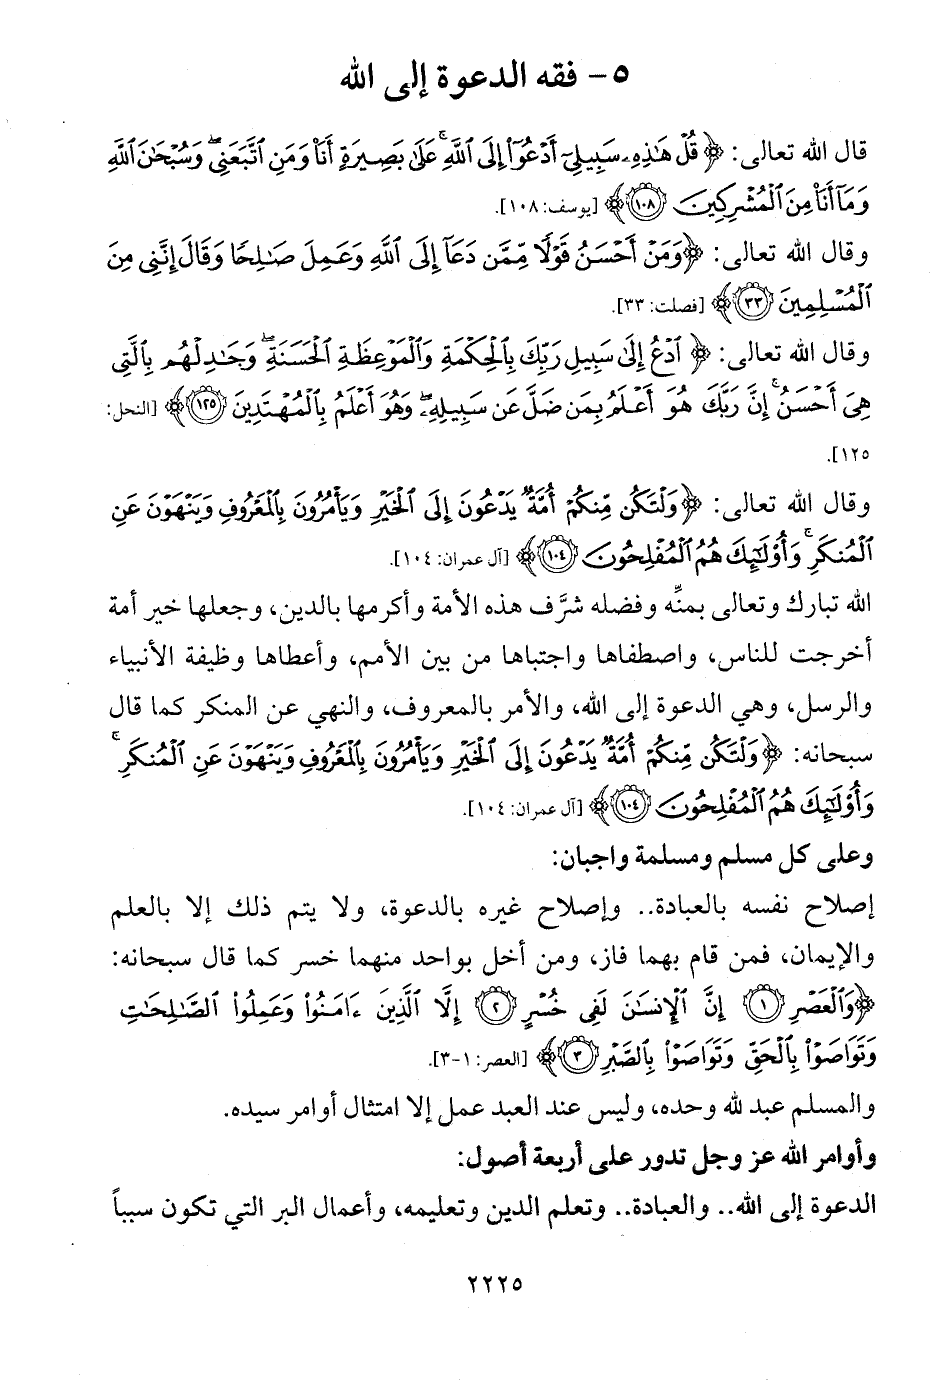 ٥- فقه الدعوة إلى الله
قال الله تعالى: ﴿قُلْ هَٰذِهِۦ سَبِيلِىٓ أَدْعُوٓا۟ إِلَى ٱللَّهِ ۚ عَلَىٰ بَصِيرَةٍ أَنَا۠ وَمَنِ ٱتَّبَعَنِى ۖ وَسُبْحَٰنَ ٱللَّهِ
وَمَآ أَنَا۠ مِنَ ٱلْمُشْرِكِينَ ١٠٨﴾ [يوسف: ١٠٨].
وقال الله تعالى: ﴿وَمَنْ أَحْسَنُ قَوْلًا مِّمَّن دَعَآ إِلَى ٱللَّهِ وَعَمِلَ صَٰلِحًا وَقَالَ إِنَّنِى مِنَ
ٱلْمُسْلِمِينَ ٣٣﴾ [فصلت: ٣٣].
وقال الله تعالى: ﴿ٱدْعُ إِلَىٰ سَبِيلِ رَبِّكَ بِٱلْحِكْمَةِ وَٱلْمَوْعِظَةِ ٱلْحَسَنَةِ ۖ وَجَٰدِلْهُم بِٱلَّتِى
هِىَ أَحْسَنُ ۚ إِنَّ رَبَّكَ هُوَ أَعْلَمُ بِمَن ضَلَّ عَن سَبِيلِهِۦ ۖ وَهُوَ أَعْلَمُ بِٱلْمُهْتَدِينَ ١٢٥﴾ [النحل:
١٢٥].
وقال الله تعالى: ﴿وَلْتَكُن مِّنكُمْ أُمَّةٌ يَدْعُونَ إِلَى ٱلْخَيْرِ وَيَأْمُرُونَ بِٱلْمَعْرُوفِ وَيَنْهَوْنَ عَنِ
ٱلْمُنكَرِ ۚ وَأُو۟لَٰٓئِكَ هُمُ ٱلْمُفْلِحُونَ ١٠٤﴾ [آل عمران: ١٠٤].
الله تبارك وتعالى بمنِّه وفضله شرَّف هذه الأمة وأكرمها بالدين، وجعلها خير أمة
أخرجت للناس، واصطفاها واجتباها من بين الأمم، وأعطاها وظيفة الأنبياء
والرسل، وهي الدعوة إلى الله، والأمر بالمعروف، والنهي عن المنكر كما قال
سبحانه: ﴿وَلْتَكُن مِّنكُمْ أُمَّةٌ يَدْعُونَ إِلَى ٱلْخَيْرِ وَيَأْمُرُونَ بِٱلْمَعْرُوفِ وَيَنْهَوْنَ عَنِ ٱلْمُنكَرِ ۚ
وَأُو۟لَٰٓئِكَ هُمُ ٱلْمُفْلِحُونَ ١٠٤﴾ [آل عمران: ١٠٤].
وعلى كل مسلم ومسلمة واجبان:
إصلاح نفسه بالعبادة.. وإصلاح غيره بالدعوة، ولا يتم ذلك إلا بالعلم
والإيمان، فمن قام بهما فاز، ومن أخل بواحد منهما خسر كما قال سبحانه:
﴿وَٱلْعَصْرِ ١ إِنَّ ٱلْإِنسَٰنَ لَفِى خُسْرٍ ٢ إِلَّا ٱلَّذِينَ ءَامَنُوا۟ وَعَمِلُوا۟ ٱلصَّٰلِحَٰتِ
وَتَوَاصَوْا۟ بِٱلْحَقِّ وَتَوَاصَوْا۟ بِٱلصَّبْرِ ٣﴾ [العصر: ١-٣].
والمسلم عبد لله وحده، وليس عند العبد عمل إلا امتثال أوامر سيده.
وأوامر الله عز وجل تدور على أربعة أصول:
الدعوة إلى الله.. والعبادة.. وتعلم الدين وتعليمه، وأعمال البر التي تكون سبباً
٢٢٢٥